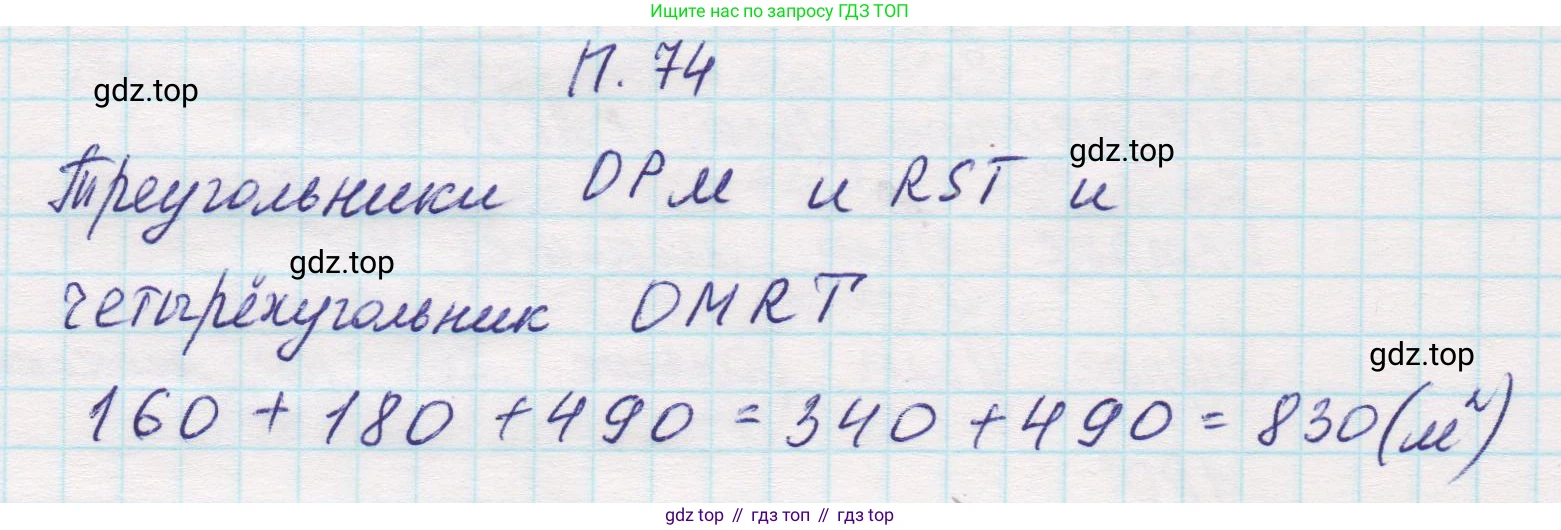 Ищите нас по запросу ГДЗ ТОП
П. 74
gdz.top
Треугольники DPM и RST и
gdz.top
gdz.top
четырёхугольник DMRT
gdz.top
160 + 180 + 490 = 340 + 490 = 830 (м²)
gdz top // гдз топ // гдз top